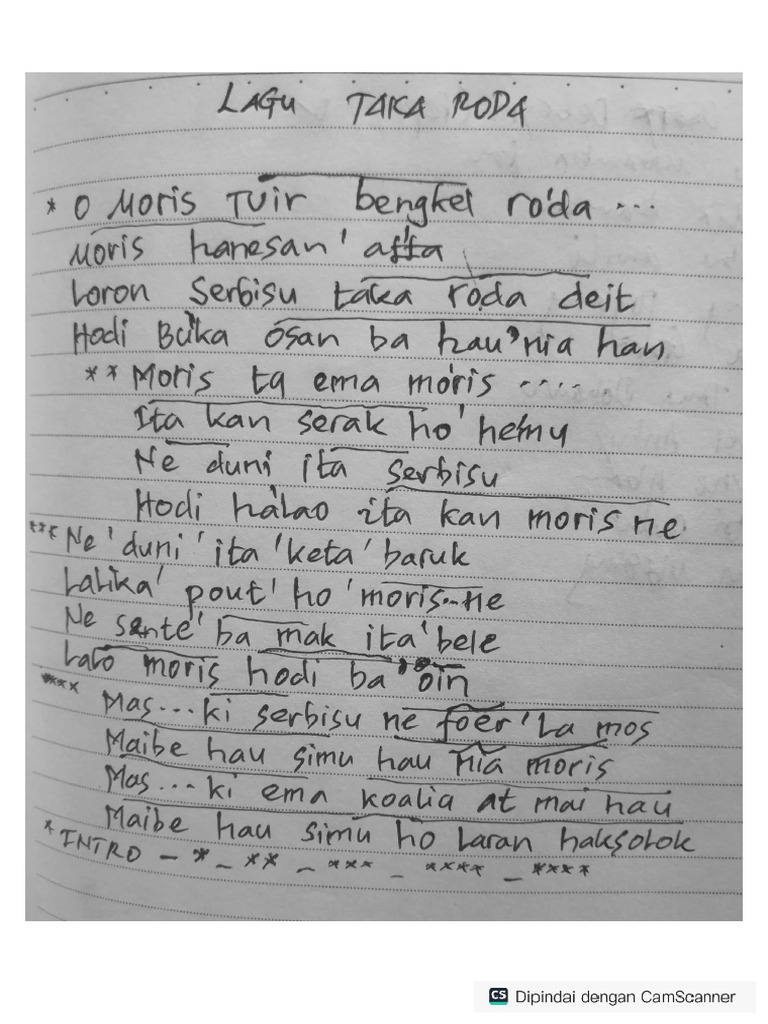 LAGU TAKA RODA
* O MORIS TUIR bengkel ro'da ...
MORIS hanesan' affa
Loron Serbisu taka roda deit
Hodi Buka osan ba hau'nia han
** Moris ta ema moris ....
Ita kan serak ho' hemu
Ne duni ita serbisu
Hodi halao ita kan moris ne
*** Ne' duni' ita 'keta' baruk
Lalika' pout' ho 'moris..ne
Ne sente' ba mak ita' bele
Lalo moris hodi ba 'oin
**** Mas...ki serbisu ne foer' La mos
Maibe hau simu hau nia moris
Mas...ki ema koalia at mai hau
Maibe hau simu ho Laran haksolok
* INTRO – * – ** – *** – **** – ****
CS Dipindai dengan CamScanner